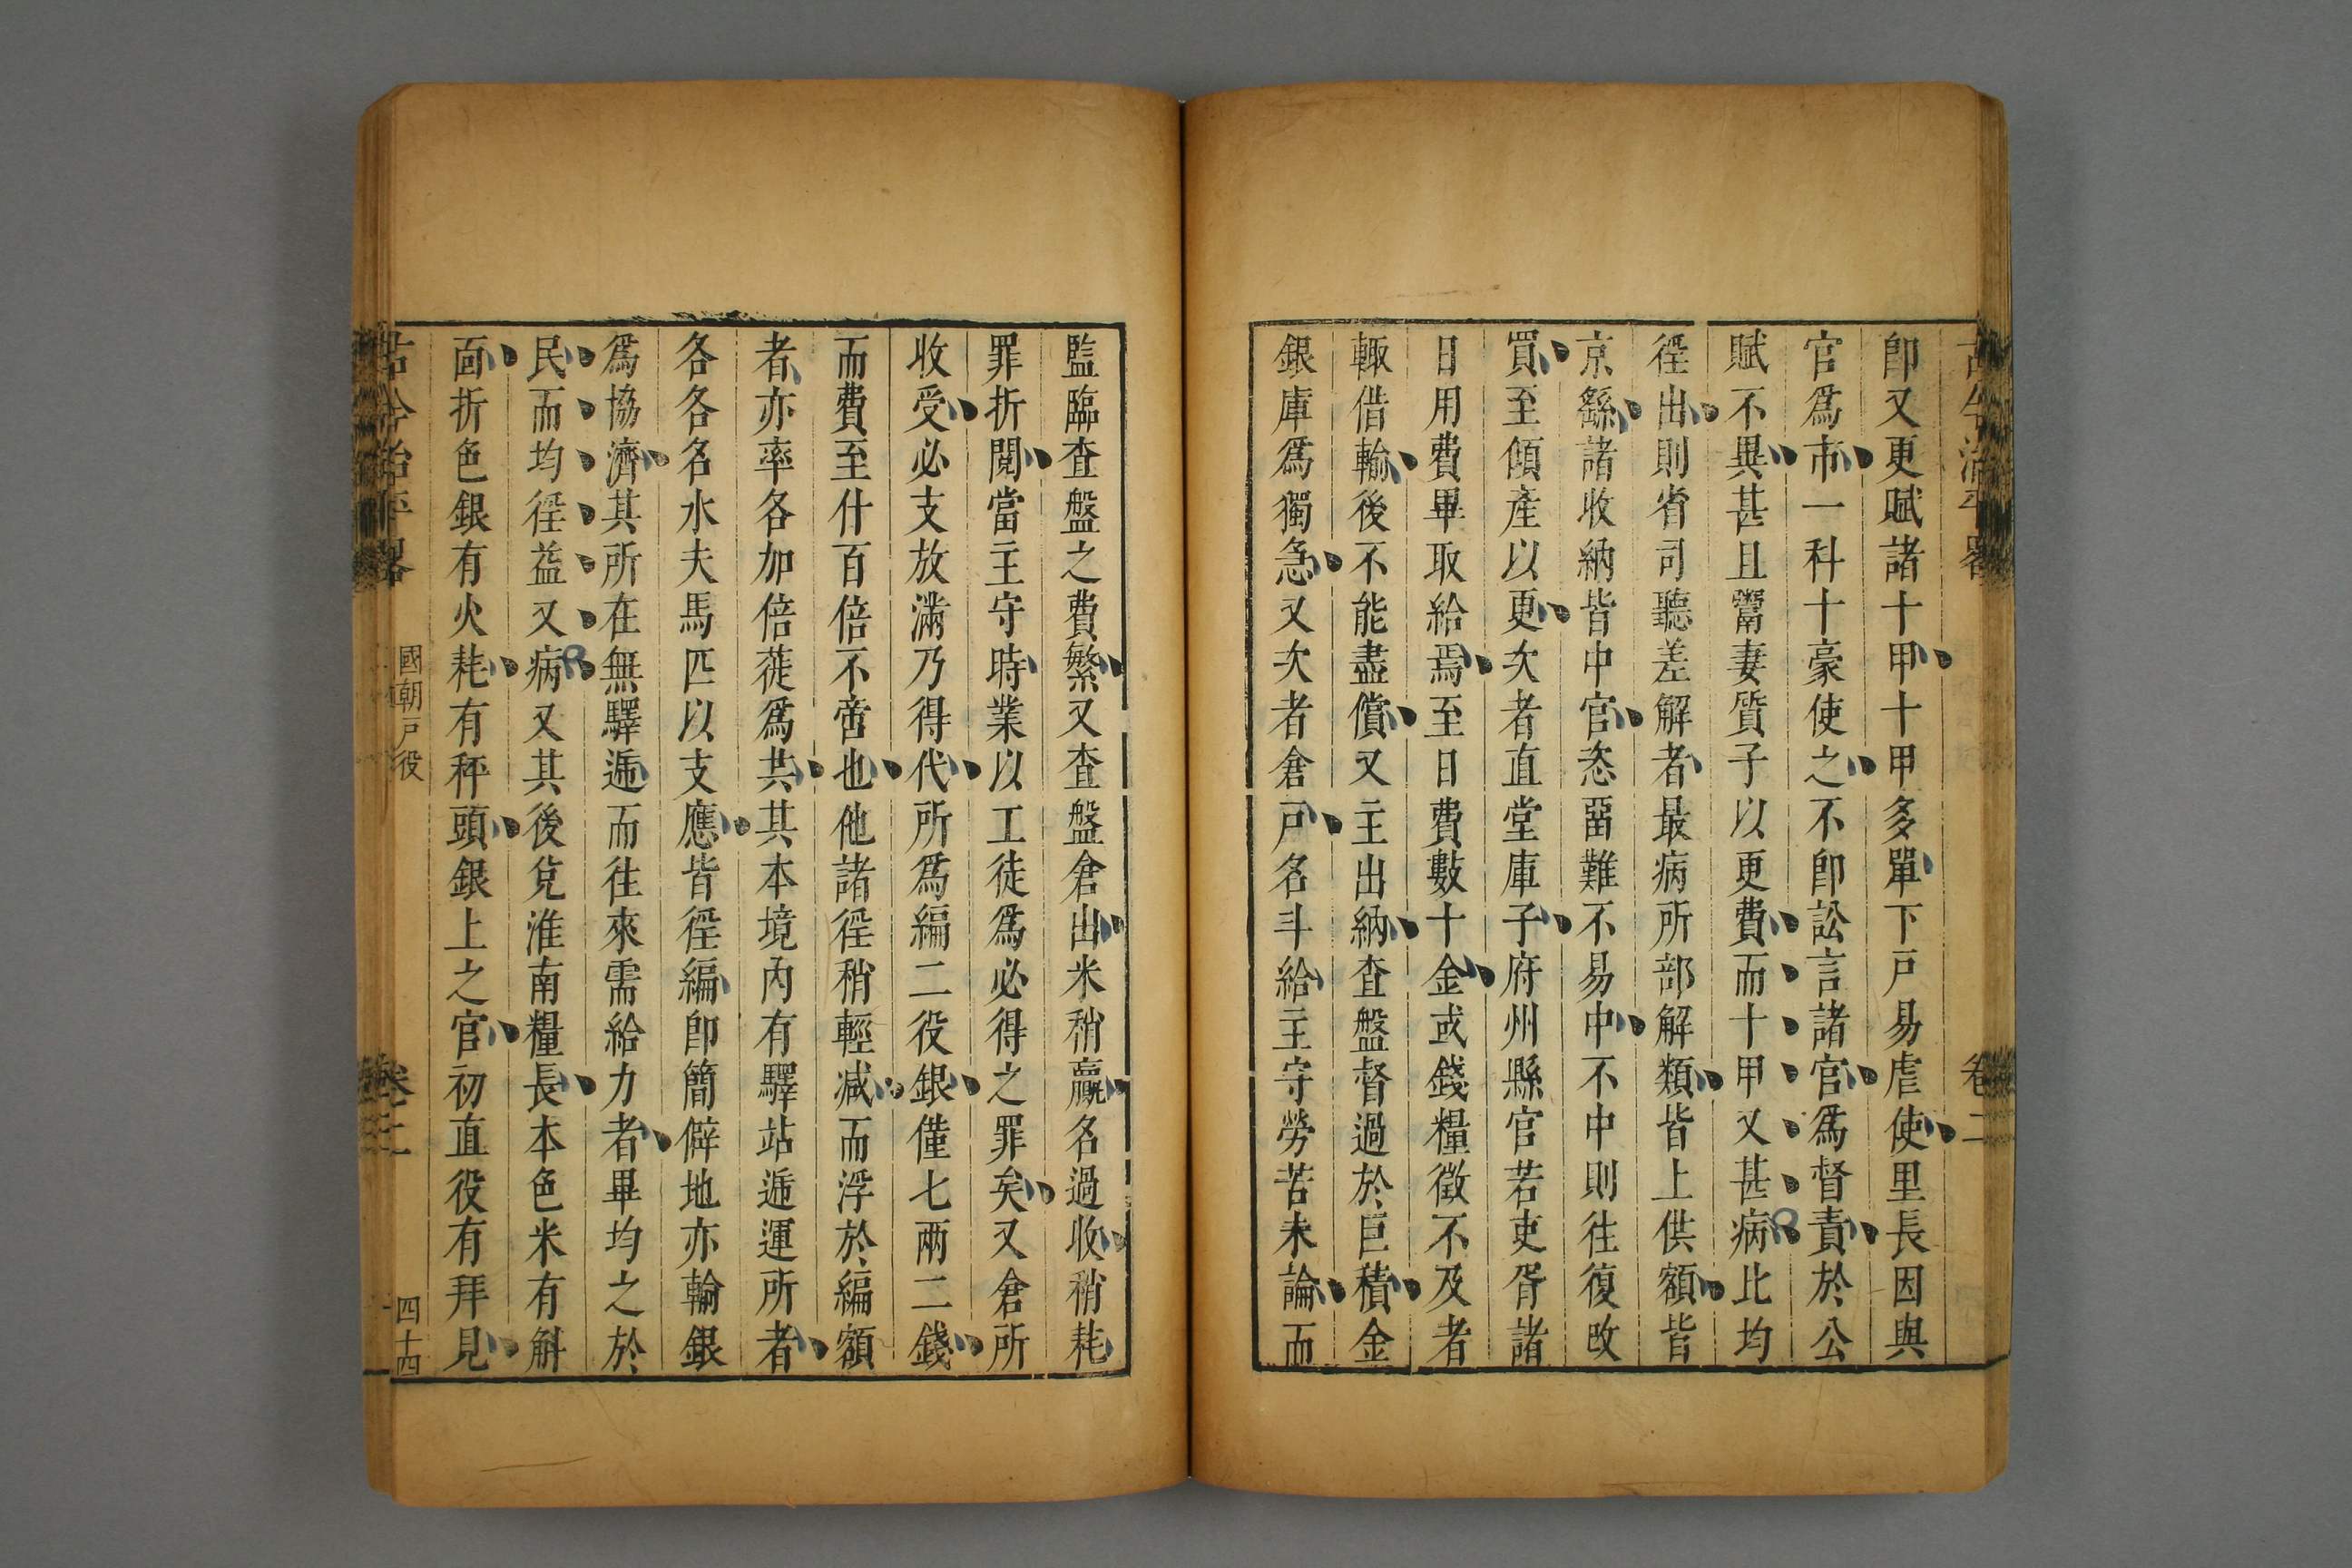 古今治平畧 卷二
卽又更賦諸十甲十甲多單下戸易虐使里長因與
官爲市一科十豪使之不卽訟言諸官爲督責於公
賦不異甚且鬻妻質子以更費而十甲又甚病比均
徑出則省司聽差解者最病所部解類皆上供額皆
京繇諸收納皆中官恣畱難不易中不中則往復改
買至傾產以更次者直堂庫子府州縣官若吏胥諸
日用費畢取給焉至日費數十金或錢糧徵不及者
輙借輸後不能盡償又主出納查盤督過於巨積金
銀庫爲獨急又次者倉戸名斗給主守勞苦未論而
監臨查盤之費繁又查盤倉出米稍羸名過收稍耗
罪折閱當主守時業以工徒爲必得之罪矣又倉所
收受必支放滿乃得代所爲編二役銀僅七兩二錢
而費至什百倍不啻也他諸徑稍輕减而浮於編額
者亦率各加倍蓰爲共其本境內有驛站遞運所者
各各名水夫馬匹以支應皆徑編卽簡僻地亦輸銀
爲協濟其所在無驛遞而往來需給力者畢均之於
民而均徑益又病又其後兌淮南糧長本色米有斛
面折色銀有火耗有秤頭銀上之官初直役有拜見
古今治平畧 國朝戸役 卷二 四十四